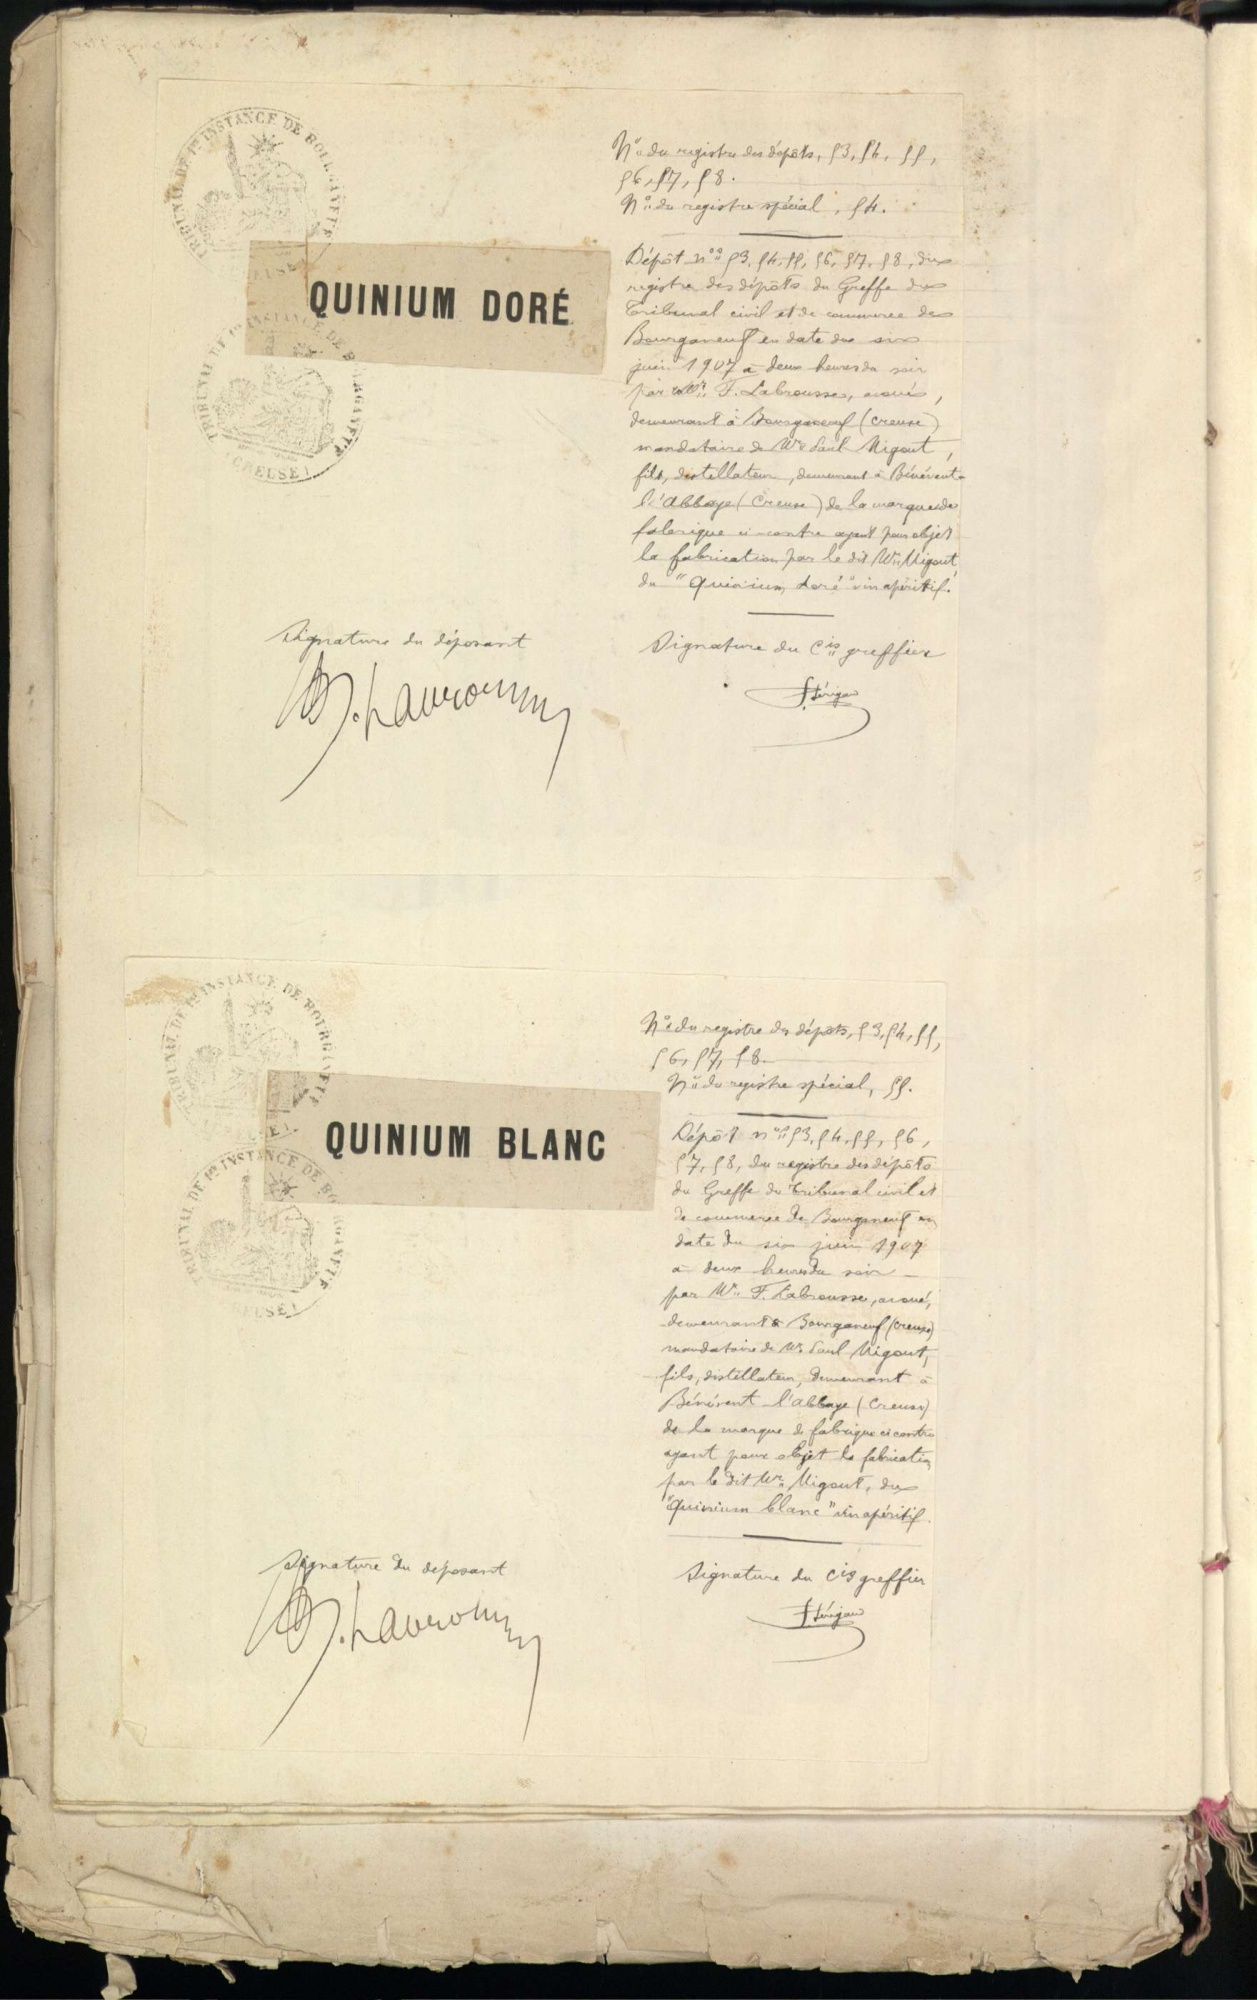 TRIBUNAL DE 1re INSTANCE DE BOURGANEUF
(CREUSE)
QUINIUM DORÉ
TRIBUNAL DE 1re INSTANCE DE BOURGANEUF
(CREUSE)
Nos du registre des dépôts, 53, 54, 55,
56, 57, 58.
No du registre spécial, 54.
Dépôt nos 53, 54, 55, 56, 57, 58, du
registre des dépôts du Greffe du
Tribunal civil et de commerce de
Bourganeuf en date du six
juin 1907 à deux heures du soir
par Mr F. Labrousse, avoué,
demeurant à Bourganeuf (Creuse)
mandataire de Mr Paul Nigout,
fils, distillateur, demeurant à Bénévent-
l'Abbaye (Creuse) de la marque de
fabrique ci-contre ayant pour objet
la fabrication par le dit Mr Nigout,
du "Quinium doré" vin apéritif.
Signature du déposant
Signature du cis greffier
F. Labrousse
QUINIUM BLANC
TRIBUNAL DE 1re INSTANCE DE BOURGANEUF
(CREUSE)
TRIBUNAL DE 1re INSTANCE DE BOURGANEUF
(CREUSE)
Nos du registre des dépôts, 53, 54, 55,
56, 57, 58.
No du registre spécial, 55.
Dépôt nos 53, 54, 55, 56,
57, 58, du registre des dépôts
du Greffe du Tribunal civil et
de commerce de Bourganeuf en
date du six juin 1907
à deux heures du soir
par Mr F. Labrousse, avoué,
demeurant à Bourganeuf (Creuse)
mandataire de Mr Paul Nigout,
fils, distillateur, demeurant à
Bénévent-l'Abbaye (Creuse)
de la marque de fabrique ci contre
ayant pour objet la fabrication
par le dit Mr Nigout, du
"Quinium blanc" vin apéritif.
Signature du déposant
Signature du cis greffier
F. Labrousse